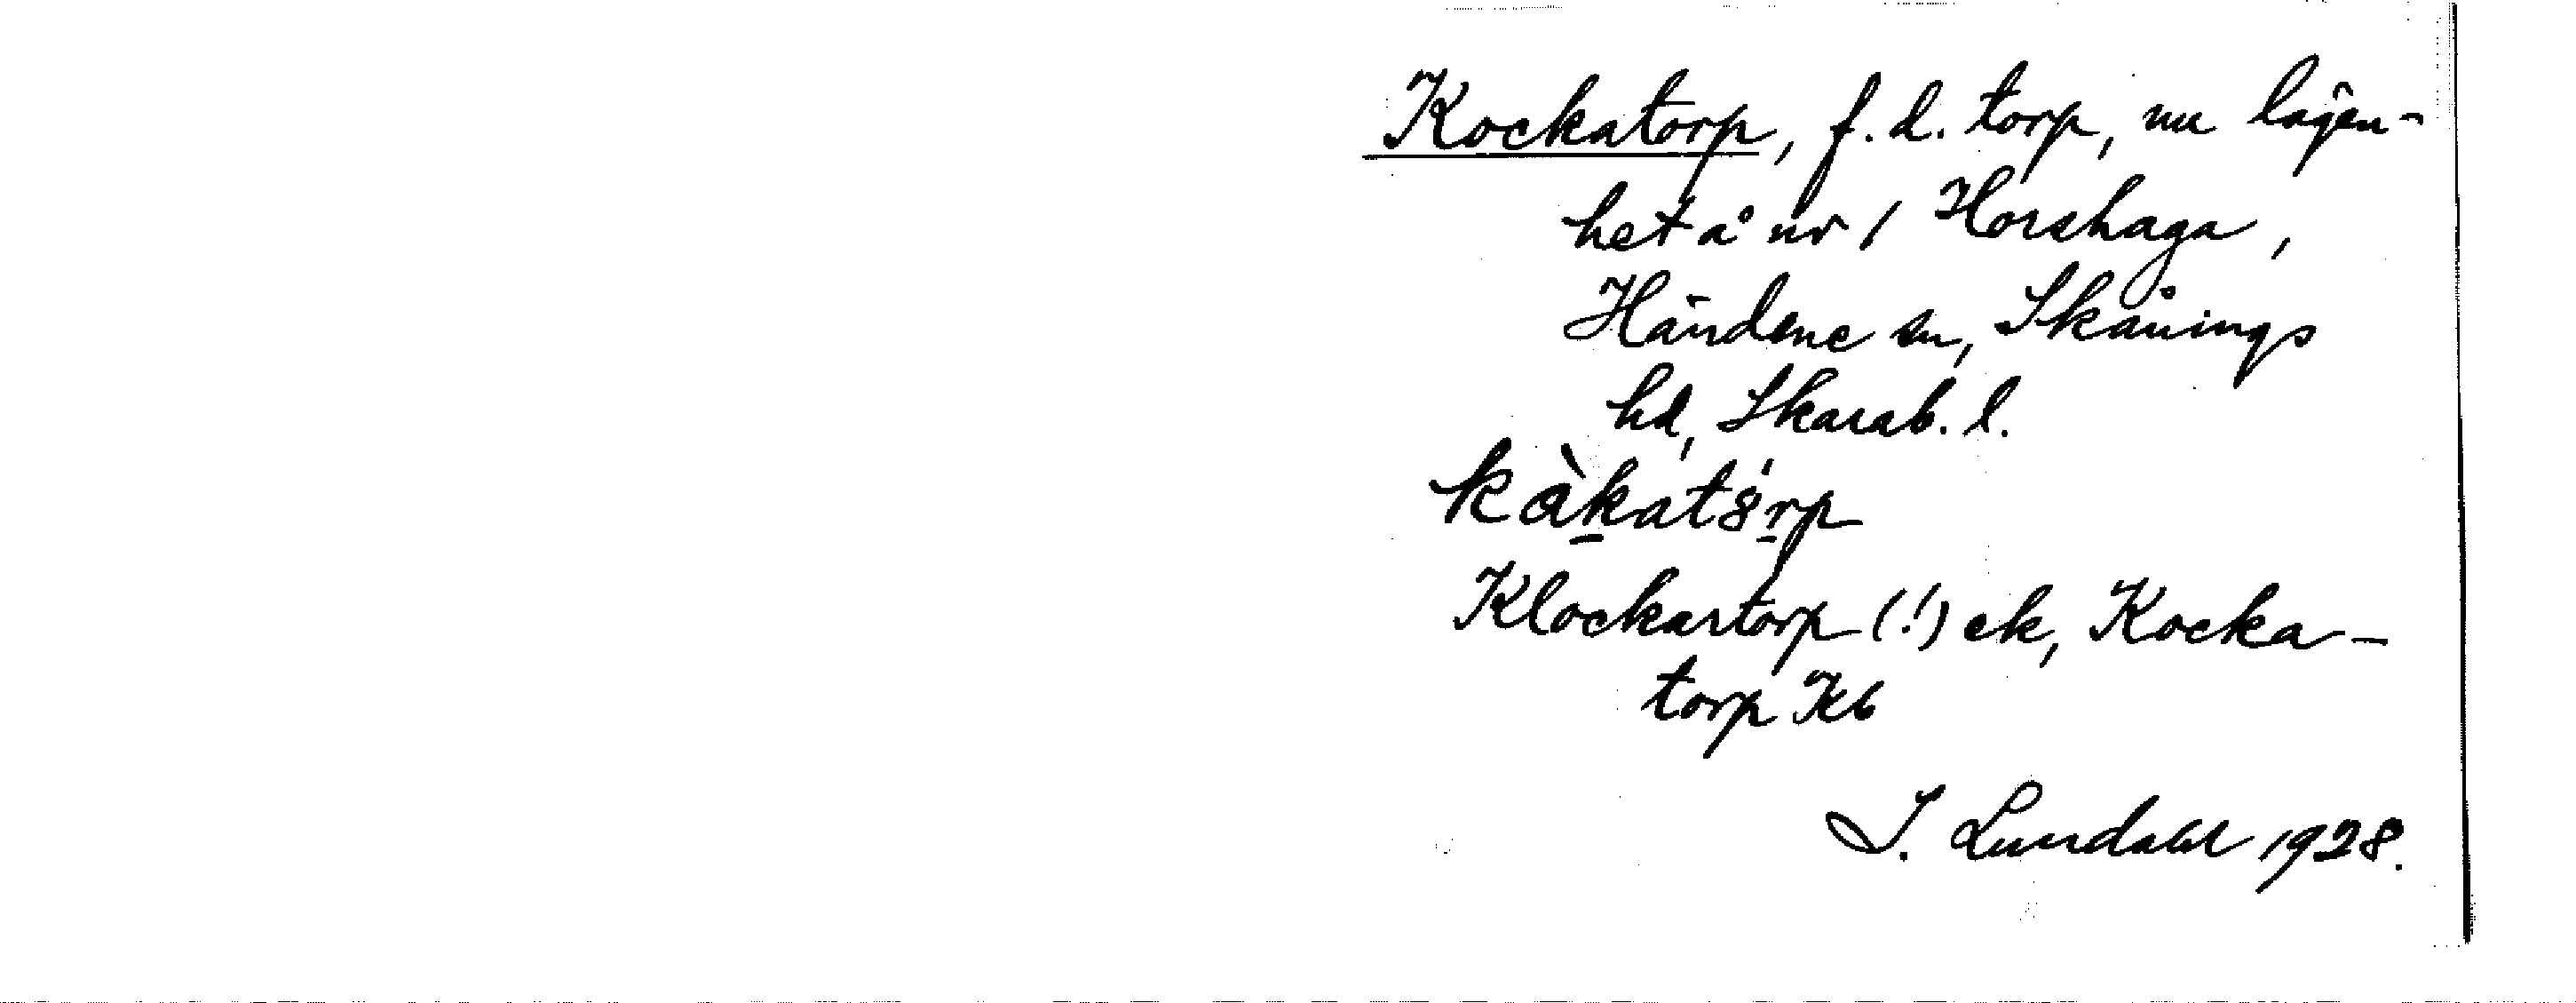 Kockatorp, f.d. torp, nu lägen-
het å nr 1 Horshaga,
Händene sn, Skånings
hd, Skarab. l.
kàkatȣ́rp
Klockartorp (!) ek, Kocka-
torp Kb
I. Lundahl 1928.